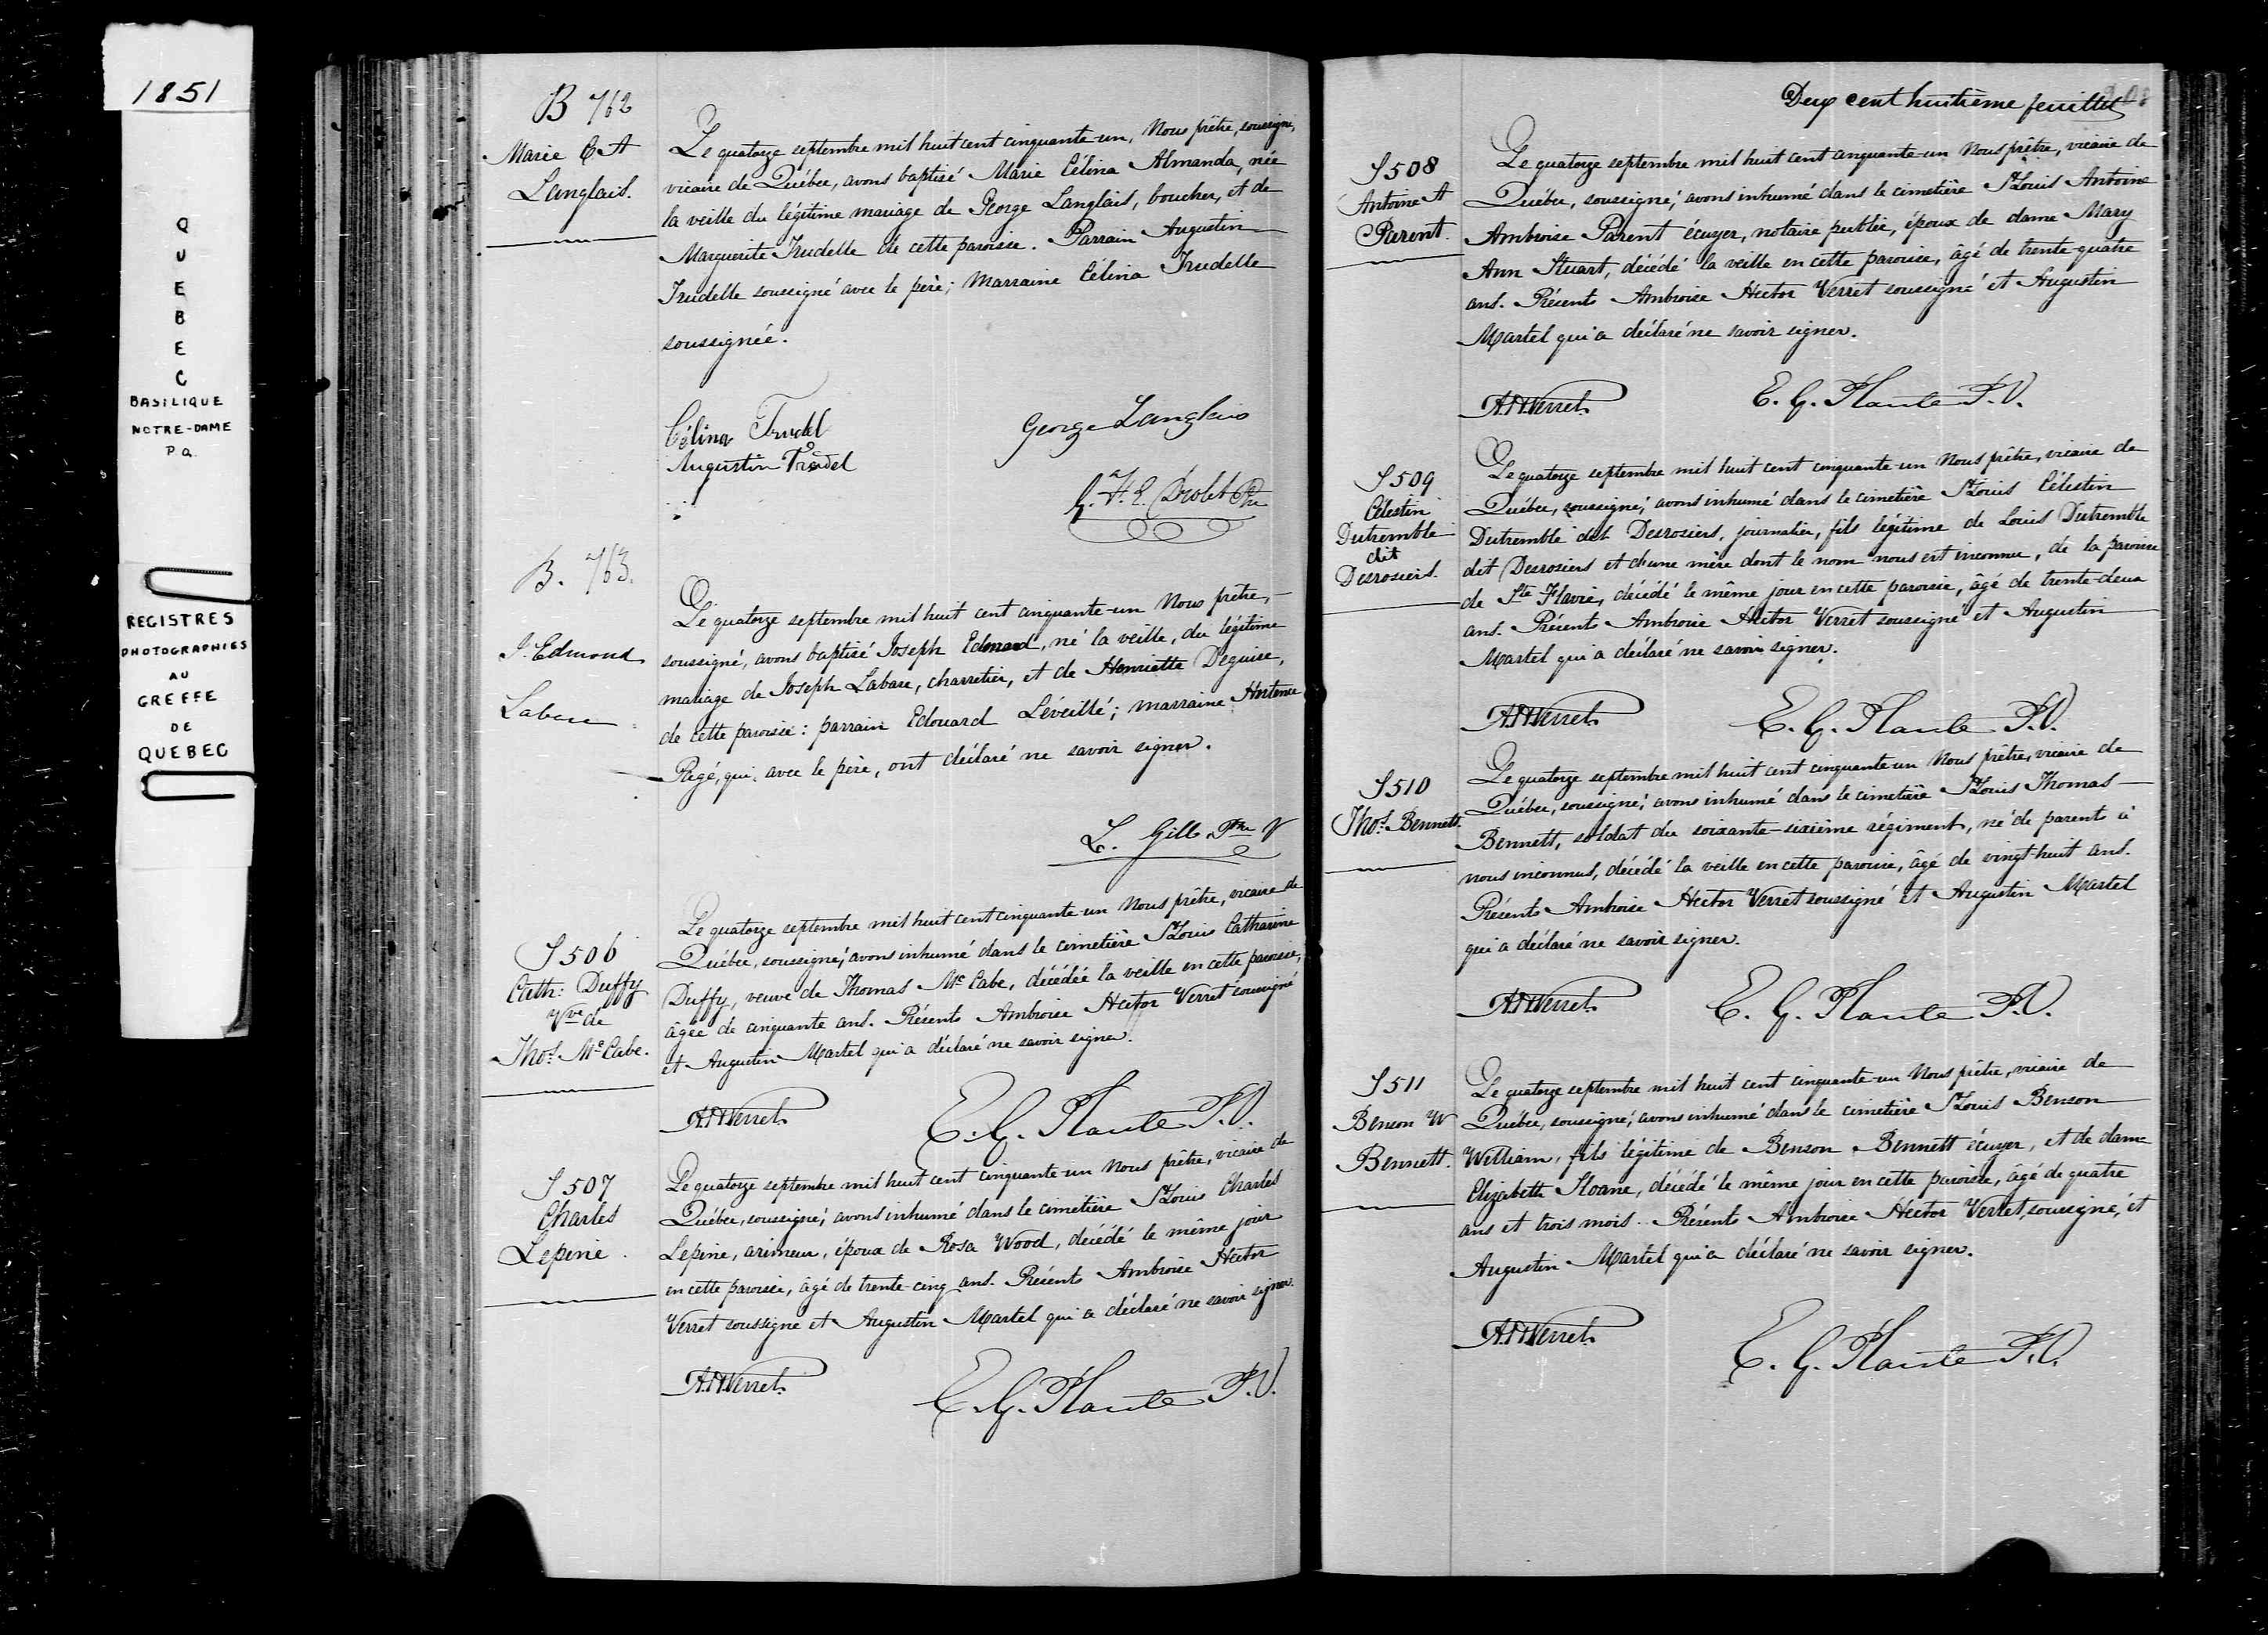 1851
QUEBEC
BASILIQUE
NOTRE-DAME
P Q.
REGISTRES
PHOTOGRAPHIES
AU
GREFFE
DE
QUEBEC
B 762
Marie C A
Langlais.
Le quatorze septembre mil huit cent cinquante-un, Nous prêtre, soussigné,
vicaire de Québec, avons baptisé Marie Célina Almanda, née
la veille du légitime mariage de George Langlais, boucher, et de
Marguerite Trudelle de cette paroisse. Parrain Augustin
Trudelle soussigné avec le père; Marraine Célina Trudelle
soussignée.
Célina Trudel
George Langlais
Augustin Trudel
G. H. E. Drolet Ptre
B. 763.
J. Edmond
Labare
Le quatorze septembre mil huit cent cinquante-un Nous prêtre,
soussigné, avons baptisé Joseph Edmond, né la veille, du légitime
mariage de Joseph Labare, charretier, et de Henriette Deguise,
de cette paroisse: parrain Edouard Léveillé; marraine Hortense
Pagé, qui, avec le père, ont déclaré ne savoir signer.
L. Gill Ptre V
S 506
Cath: Duffy
Vve de
Thos. Mc Cabe.
Le quatorze septembre mil huit cent cinquante-un Nous prêtre, vicaire de
Québec, soussigné, avons inhumé dans le cimetière St Louis Catharine
Duffy, veuve de Thomas Mc Cabe, décédée la veille en cette paroisse,
âgée de cinquante ans. Présents Ambroise Hector Verret soussigné
et Augustin Martel qui a déclaré ne savoir signer.
A.H.Verret.
E. G. Plante P.V.
S 507
Charles
Lepine.
Le quatorze septembre mil huit cent cinquante-un Nous prêtre, vicaire de
Québec, soussigné, avons inhumé dans le cimetière St Louis Charles
Lepine, arimeur, époux de Rosa Wood, décédé le même jour
en cette paroisse, âgé de trente-cinq ans. Présents Ambroise Hector
Verret soussigné et Augustin Martel qui a déclaré ne savoir signer.
A.H.Verret.
E. G. Plante P.V.
Deux cent huitième feuillet
208
S 508
Antoine A
Parent.
Le quatorze septembre mil huit cent cinquante-un Nous prêtre, vicaire de
Québec, soussigné, avons inhumé dans le cimetière St Louis Antoine
Ambroise Parent écuyer, notaire public, époux de dame Mary
Ann Stuart, décédé la veille en cette paroisse, âgé de trente-quatre
ans. Présents Ambroise Hector Verret soussigné et Augustin
Martel qui a déclaré ne savoir signer.
A.H.Verret.
E. G. Plante P.V.
S 509
Célestin
Dutremble
dit
Desrosiers.
Le quatorze septembre mil huit cent cinquante-un Nous prêtre, vicaire de
Québec, soussigné, avons inhumé dans le cimetière St Louis Célestin
Dutremble dit Desrosiers, journalier, fils légitime de Louis Dutremble
dit Desrosiers et d'une mère dont le nom nous est inconnu, de la paroisse
de Ste Flavie, décédé le même jour en cette paroisse, âgé de trente-deux
ans. Présents Ambroise Hector Verret soussigné et Augustin
Martel qui a déclaré ne savoir signer.
A.H.Verret.
E. G. Plante P.V.
S 510
Thos. Bennett.
Le quatorze septembre mil huit cent cinquante-un Nous prêtre, vicaire de
Québec, soussigné, avons inhumé dans le cimetière St Louis Thomas
Bennett, soldat du soixante-sixième régiment, né de parents à
nous inconnus, décédé la veille en cette paroisse, âgé de vingt-huit ans.
Présents Ambroise Hector Verret soussigné et Augustin Martel
qui a déclaré ne savoir signer.
A.H.Verret.
E. G. Plante P.V.
S 511
Benson W
Bennett.
Le quatorze septembre mil huit cent cinquante-un Nous prêtre, vicaire de
Québec, soussigné, avons inhumé dans le cimetière St Louis Benson
William, fils légitime de Benson Bennett écuyer, et de dame
Elizabeth Sloane, décédé le même jour en cette paroisse, âgé de quatre
ans et trois mois. Présents Ambroise Hector Verret, soussigné, et
Augustin Martel qui a déclaré ne savoir signer.
A.H.Verret.
E. G. Plante P.V.